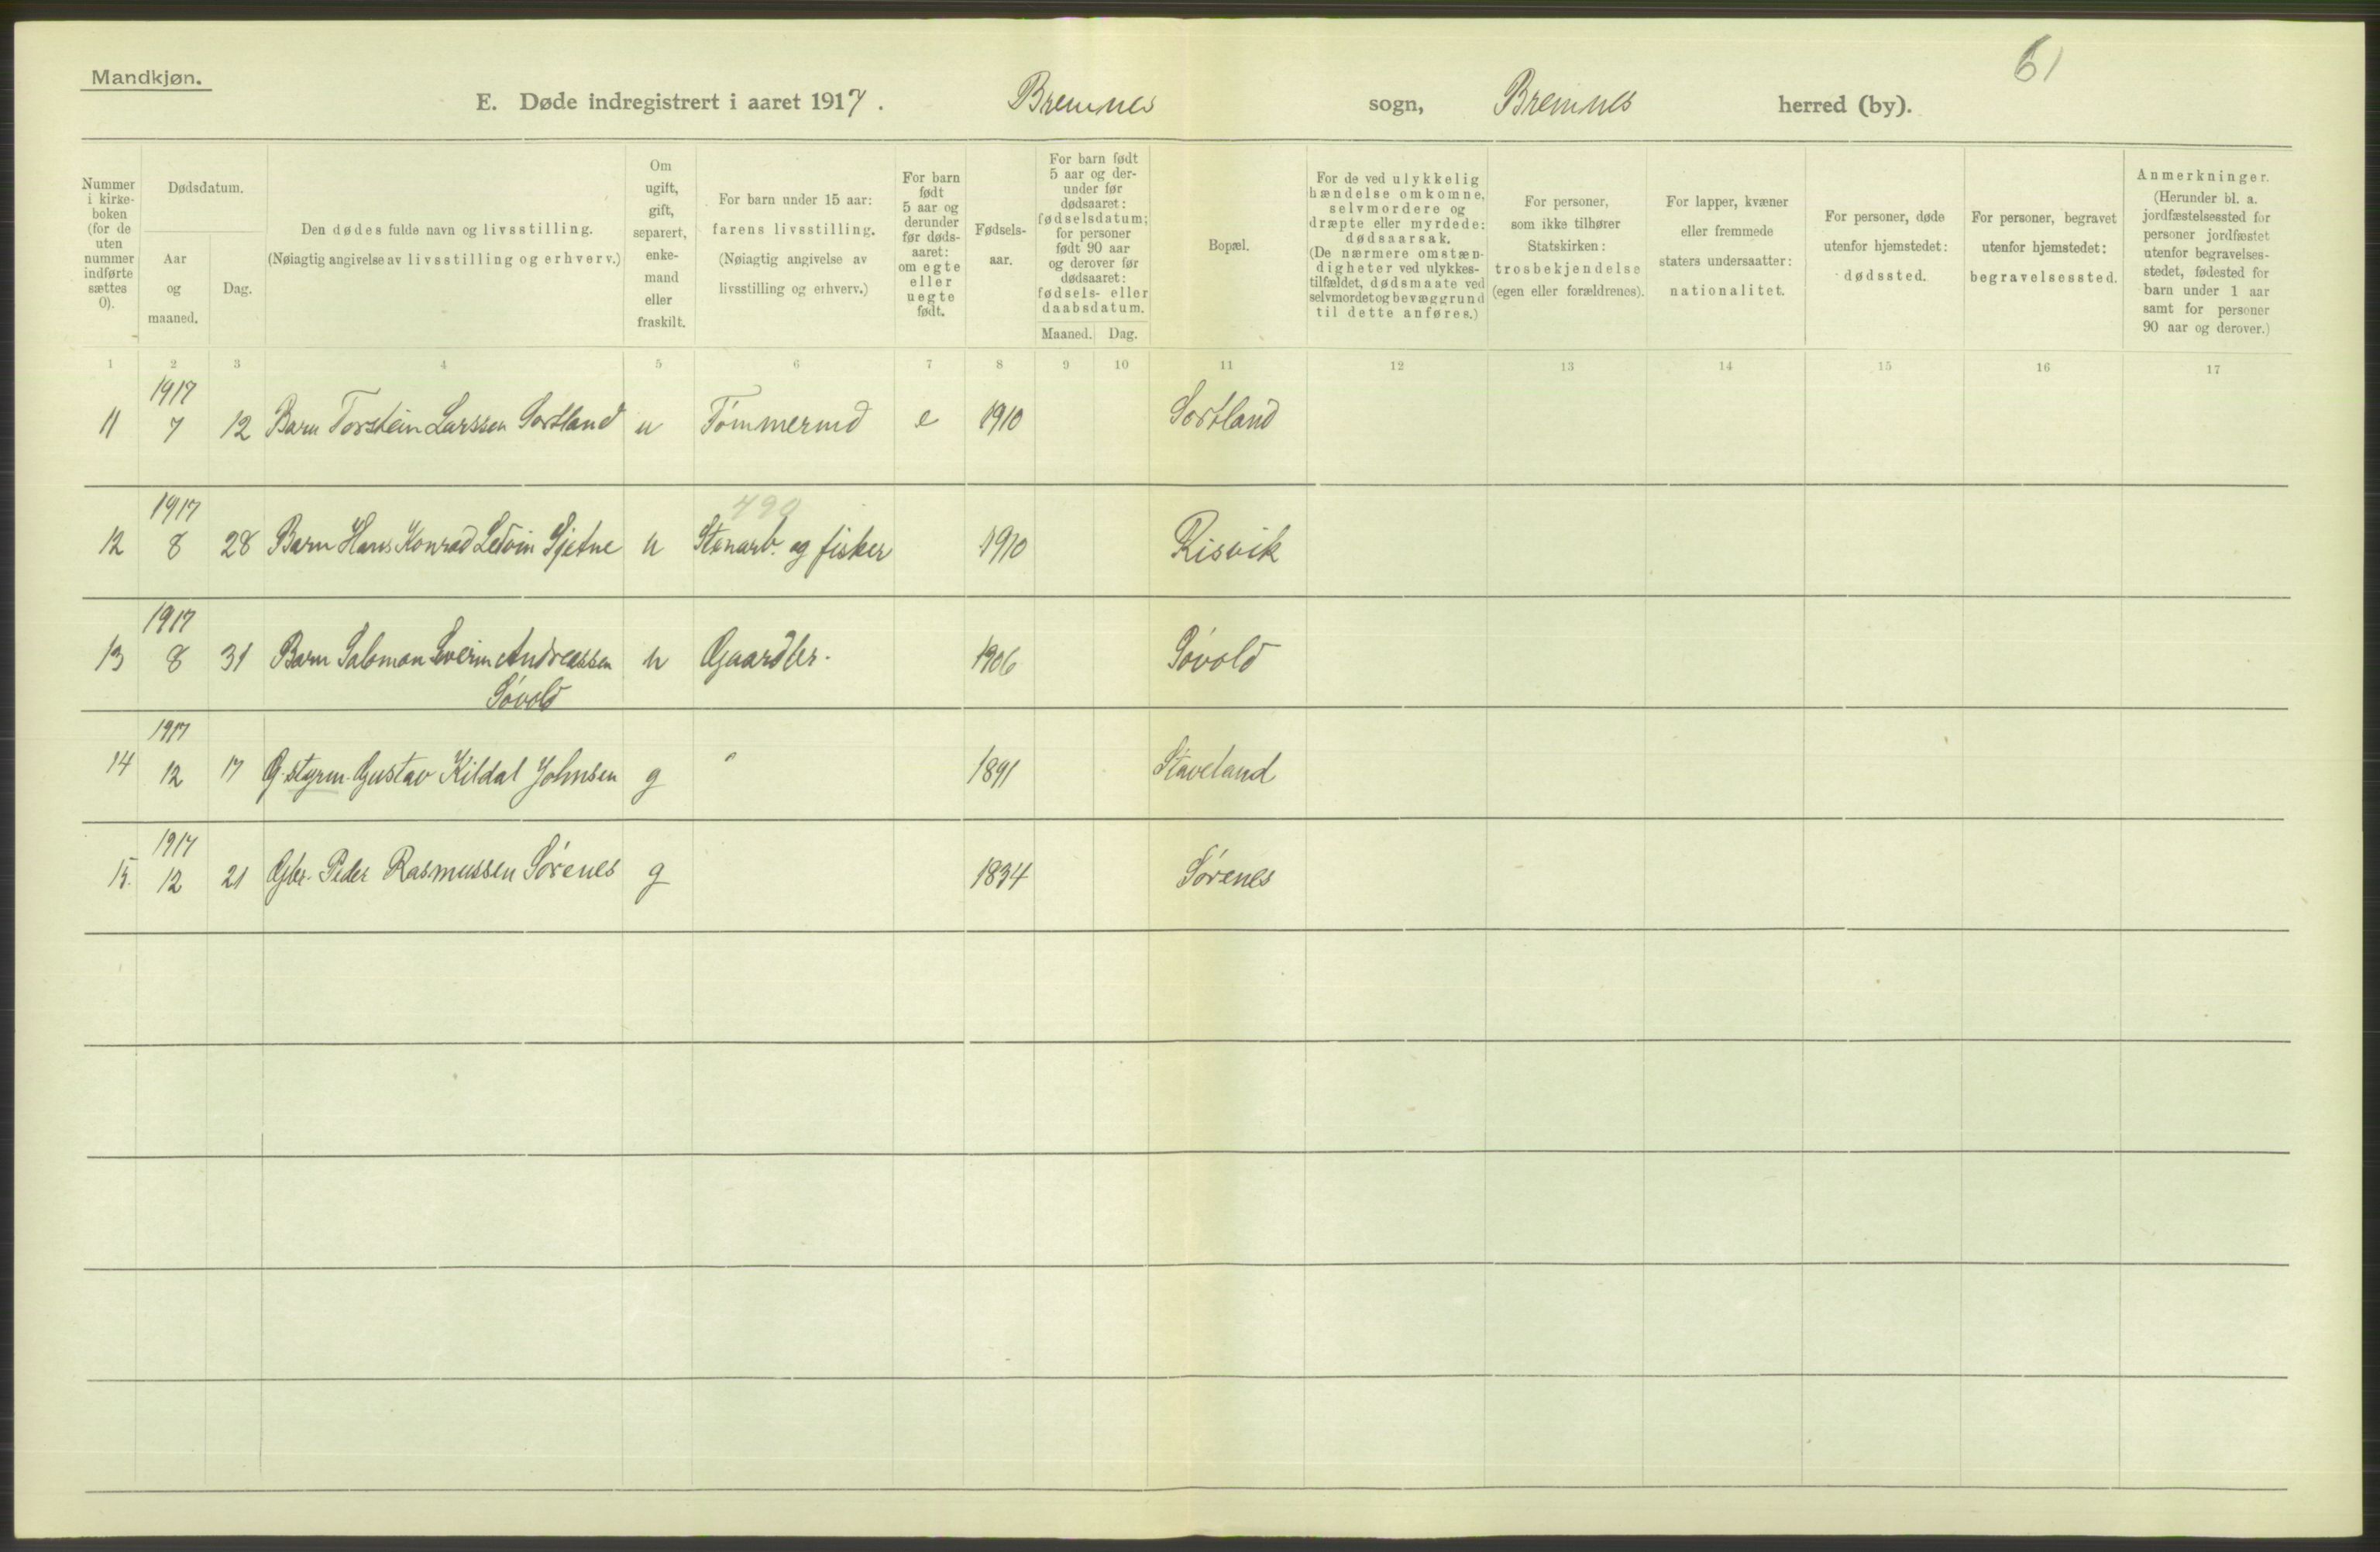 61
Mandkjøn.
E. Døde indregistrert i aaret 1917. Bremnes sogn, Bremnes herred (by).
Nummer i kirke- boken (for de uten nummer indførte sættes 0).
Dødsdatum.
Aar og maaned.
Dag.
Den dødes fulde navn og livsstilling.
(Nøiagtig angivelse av livsstilling og erhverv.)
Om ugift, gift, separert, enke- mand eller fraskilt.
For barn under 15 aar: farens livsstilling.
(Nøiagtig angivelse av livsstilling og erhverv.)
For barn født 5 aar og derunder før døds- aaret: om egte eller uegte født.
Fødsels- aar.
For barn født 5 aar og der- under før dødsaaret: fødselsdatum; for personer født 90 aar og derover før dødsaaret: fødsels- eller daabsdatum.
Maaned. Dag.
Bopæl.
For de ved ulykkelig hændelse omkomne, selvmordere og dræpte eller myrdede: dødsaarsak.
(De nærmere omstæn- digheter ved ulykkes- tilfældet, dødsmaate ved selvmordet og bevæggrund til dette anføres.)
For personer, som ikke tilhører Statskirken: trosbekjendelse (egen eller forældrenes).
For lapper, kvæner eller fremmede staters undersaatter: nationalitet.
For personer, døde utenfor hjemstedet: dødssted.
For personer, begravet utenfor hjemstedet: begravelsessted.
Anmerkninger.
(Herunder bl. a. jordfæstelsessted for personer jordfæstet utenfor begravelses- stedet, fødested for barn under 1 aar samt for personer 90 aar og derover.)
1 2 3 4 5 6 7 8 9 10 11 12 13 14 15 16 17
1917
11 7 12 Barn Torstein Larssen Sortland u Tømmermd e 1910 Sortland
1917 490
12 8 28 Barn Hans Konrad Ledvin Gjetne u Stenarb. og fisker 1910 Risvik
1917
13 8 31 Barn Salomon Severin Andreassen u Gaardbr. 1906 Søvold
Søvold
1917
14 12 17 G. styrm. Gustav Kildal Johnsen g " 1891 Staveland
1917
15. 12 21 Gbr. Peder Rasmussen Sørenes g 1834 Sørenes